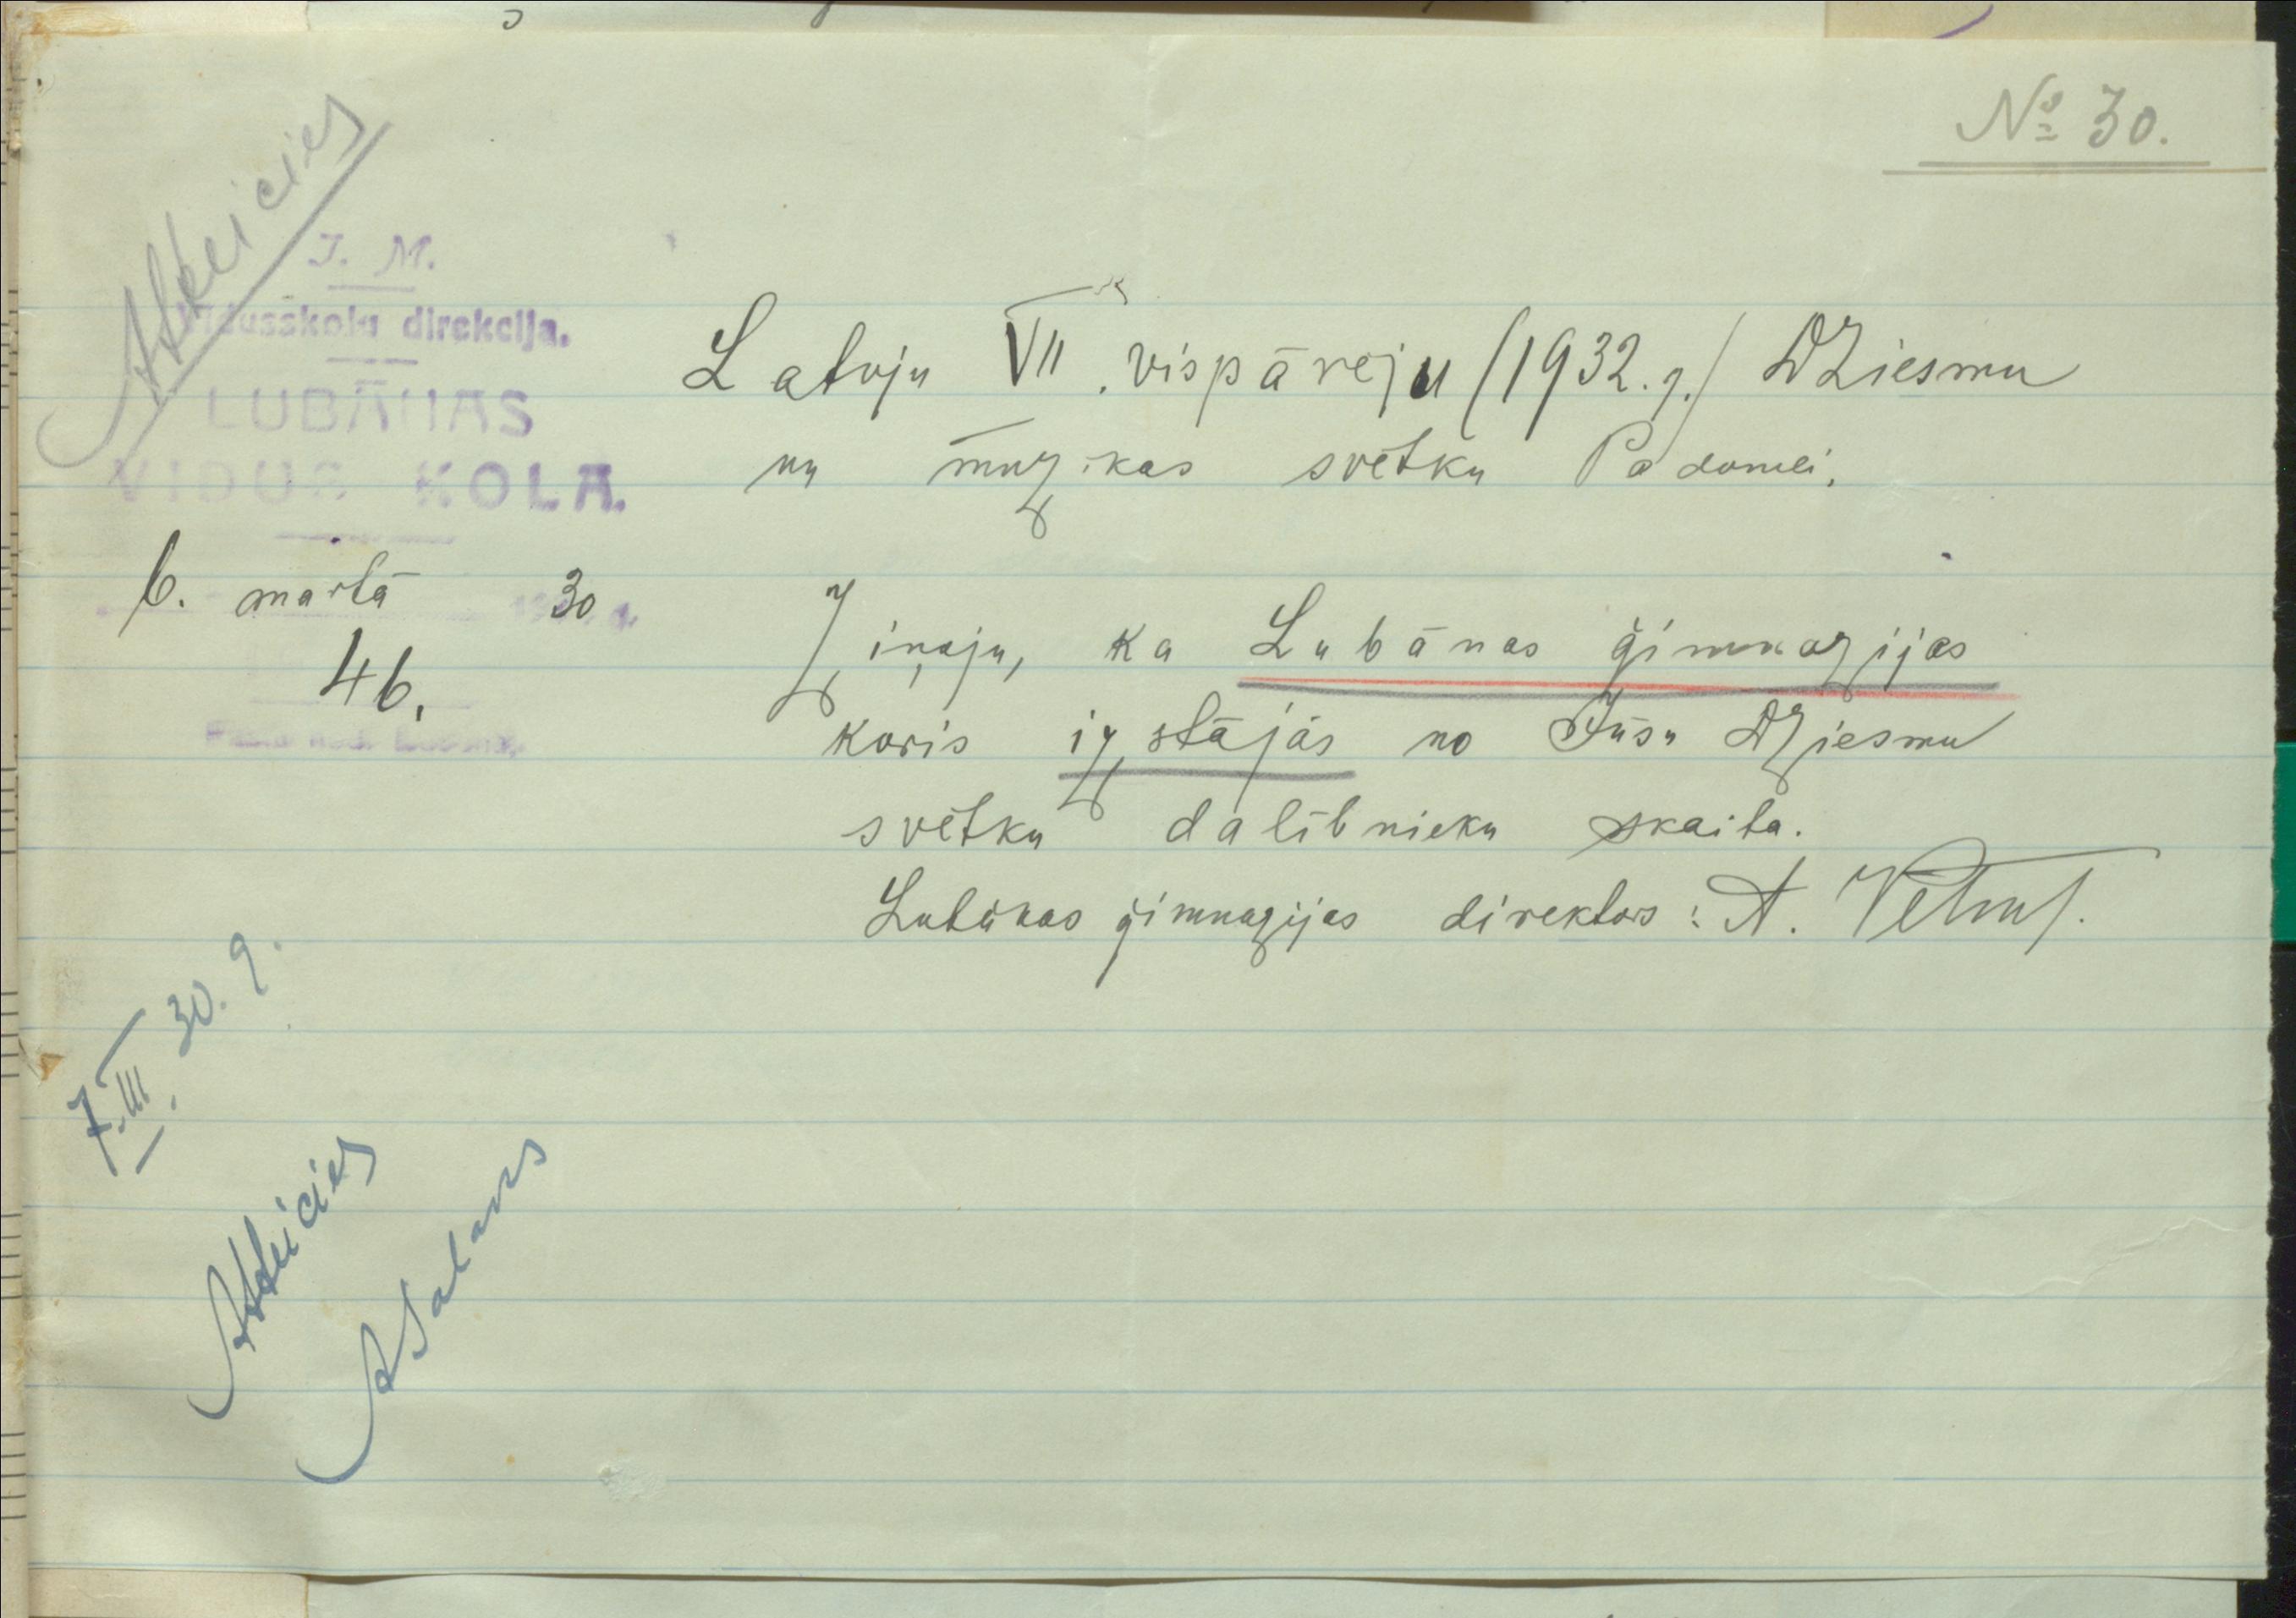 № 30.
Atteicies
I. M.
Vidusskolu direkcija.
LUBĀNAS
VIDUS KOLA.
6. martā 30
46.
Latvju VII. vispārēju (1932.g.) Dziesmu
un mūzikas svētku Padomei.
Ziņoju, ka Lubānas ģimnazijas
koris izstājās no Jūsu Dziesmu
svētku dalībnieku skaita.
Lubānas ģimnazijas direktors: A.
7. III. 30. g.
Atteicies